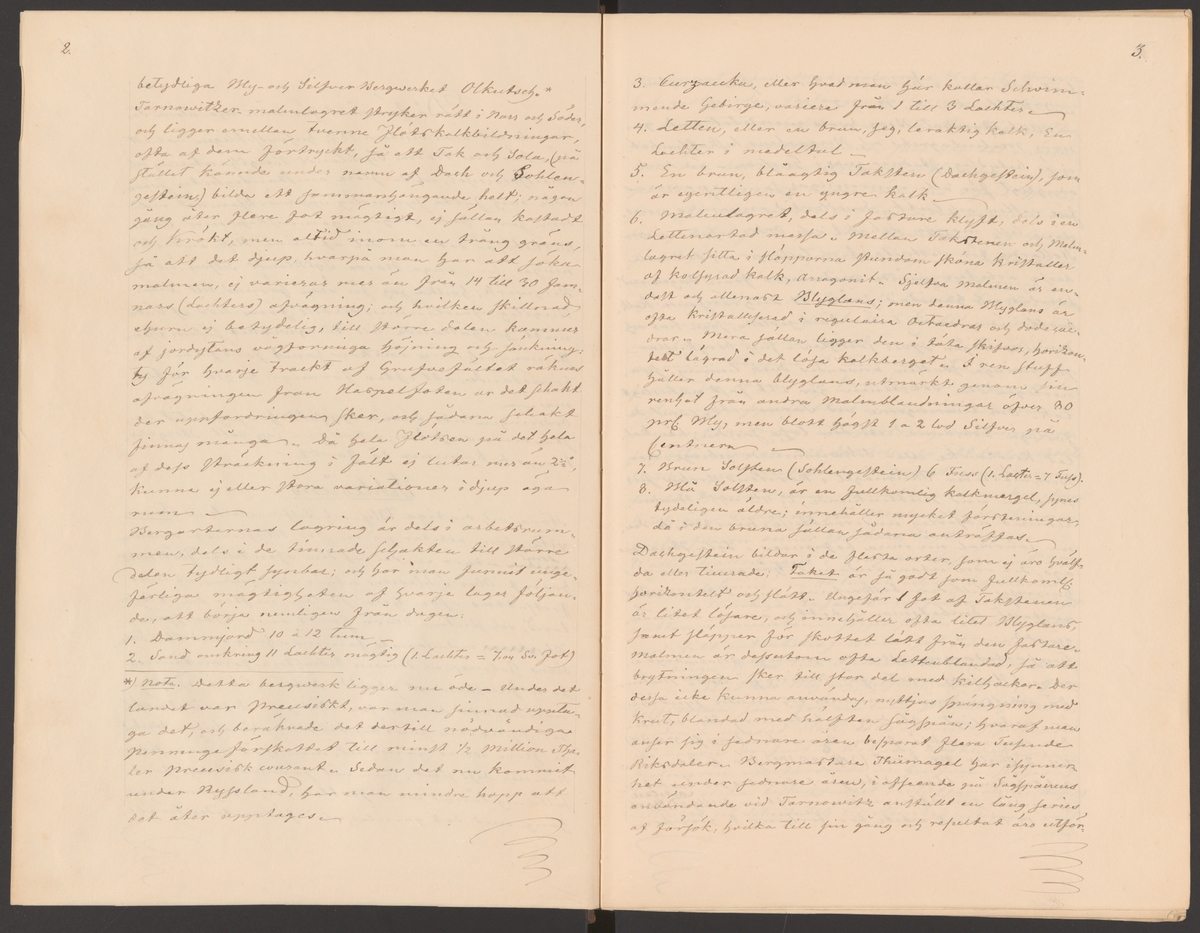 2.
betydliga Bly- och Silfver Bergwerket Olkutsch.*
Tarnowitzer malmlagret stryker rätt i Norr och Söder,
och ligger emellan tvenne Flötskalkbildningar,
ofta af dem förtryckt, så att Tak och Sola, (på
stället kände under namn af Dach och Sohlen-
gestein,) bilda ett sammanhängande helt; någon
gång åter flere fot mägtigt, ej sällan kastadt
och krökt, men altid inom en trång gräns,
så att det djup, hvarpå man har att söka
malmen, ej varierar mer än från 14 till 30 Fam-
nars (Lachters) afvägning; och hvilken skillnad
ehuru ej betydelig, till större delen kommer
af jordytans vågformiga höjning och sänkning;
ty för hvarje trackt af Grufvefältet räknas
afvägningen från Haspelfoten ur det schakt
der uppfordringen sker, och sådana schakt
finnas många. Då hela Flötsen på det hela
af dess sträckning i fält ej lutar mer än 2½°,
kunna ej eller stora variationer i djup äga
rum.
Bergarternas lagring är dels i arbetsrum-
men, dels i de timrade schakten till större
delen tydligt synbar; och har man funnit unge-
färliga mägtigheten af hvarje lager följan-
de, att börja nemligen från dagen:
1. Dammjord 10 à 12 tum
2. Sand omkring 11 Lachter mägtig (1. Lachter = 7 Fot)
*) Nota. Detta bergwerk ligger nu öde – Under det
landet var Preussiskt, var man sinnad uppta-
ga det, och beräknade det dertill nödvändiga
Penninge förskottet till minst ½ Million Tha-
ler Preussisk courant. Sedan det nu kommit
under Ryssland, har man mindre hopp att
det åter upptages.
3.
3. Curzawka, eller hvad man här kallar Schwim-
mende Gebirge, variera från 1 till 3 Lachter.
4. Letten, eller en brun, seg, leraktig kalk, En
Lachter i medeltal
5. En brun, blåagtig Taksten (Dachgestein), som
är egentligen en yngre kalk
6. Malmlagret, dels i fastare klyft, dels i en
Lettenartad massa. Mellan Takstenen och Malm-
lagret sitta i släpporna stundom sköna kristaller
af kolsyrad kalk, Arragonit. Sjelfva Malmen är en-
dast och allenast Blyglans; men denna Blyglans är
ofta kristalliserad i regulaira Octaedrar och dodecae-
drar. Mera sällan ligger den i täta skifvor, horizon-
telt lagrad i det lösa kalkberget. I ren stuff
håller denna blyglans, utmärkt genom sin
renhet från andra Malmblandningar öfver 80
prC Bly, men blott högst 1 a 2 lod Silfver på
Centnern
7. Brun Solsten (Sohlengestein) 6 Fuss (1. Lachter = 7 Fuss).
8. Blå Solsten, är en fullkomlig kalkmergel, synes
tydeligen äldre; innehåller mycket försteningar,
då i den bruna sällan sådana anträffas.
Dachgestein bildar i de flesta orter, som ej äro hvälf-
da eller timrade, Taket är så godt som fullkomligt
horizontelt och slätt. Ungefär 1 fot af Takstenen
är litet lösare, och innehåller ofta litet Blyglans,
samt släpper för skottet lätt från den fastare.
Malmen är dessutom ofta Lettenblandad, så att
brytningen sker till stor del med kilhackor. Der
dessa icke kunna användas, nyttjas sprängning med
krut, blandad med hälften sågspån; hvaraf man
anser sig i sednare åren besparat flera Tusende
Riksdaler. Bergmästare Thürnagel har isynner-
het under sednare åren, i afseende på Sågspånens
användande vid Tarnowitz anställt en lång series
af försök, hvilka till sin gång och resultat äro utför-